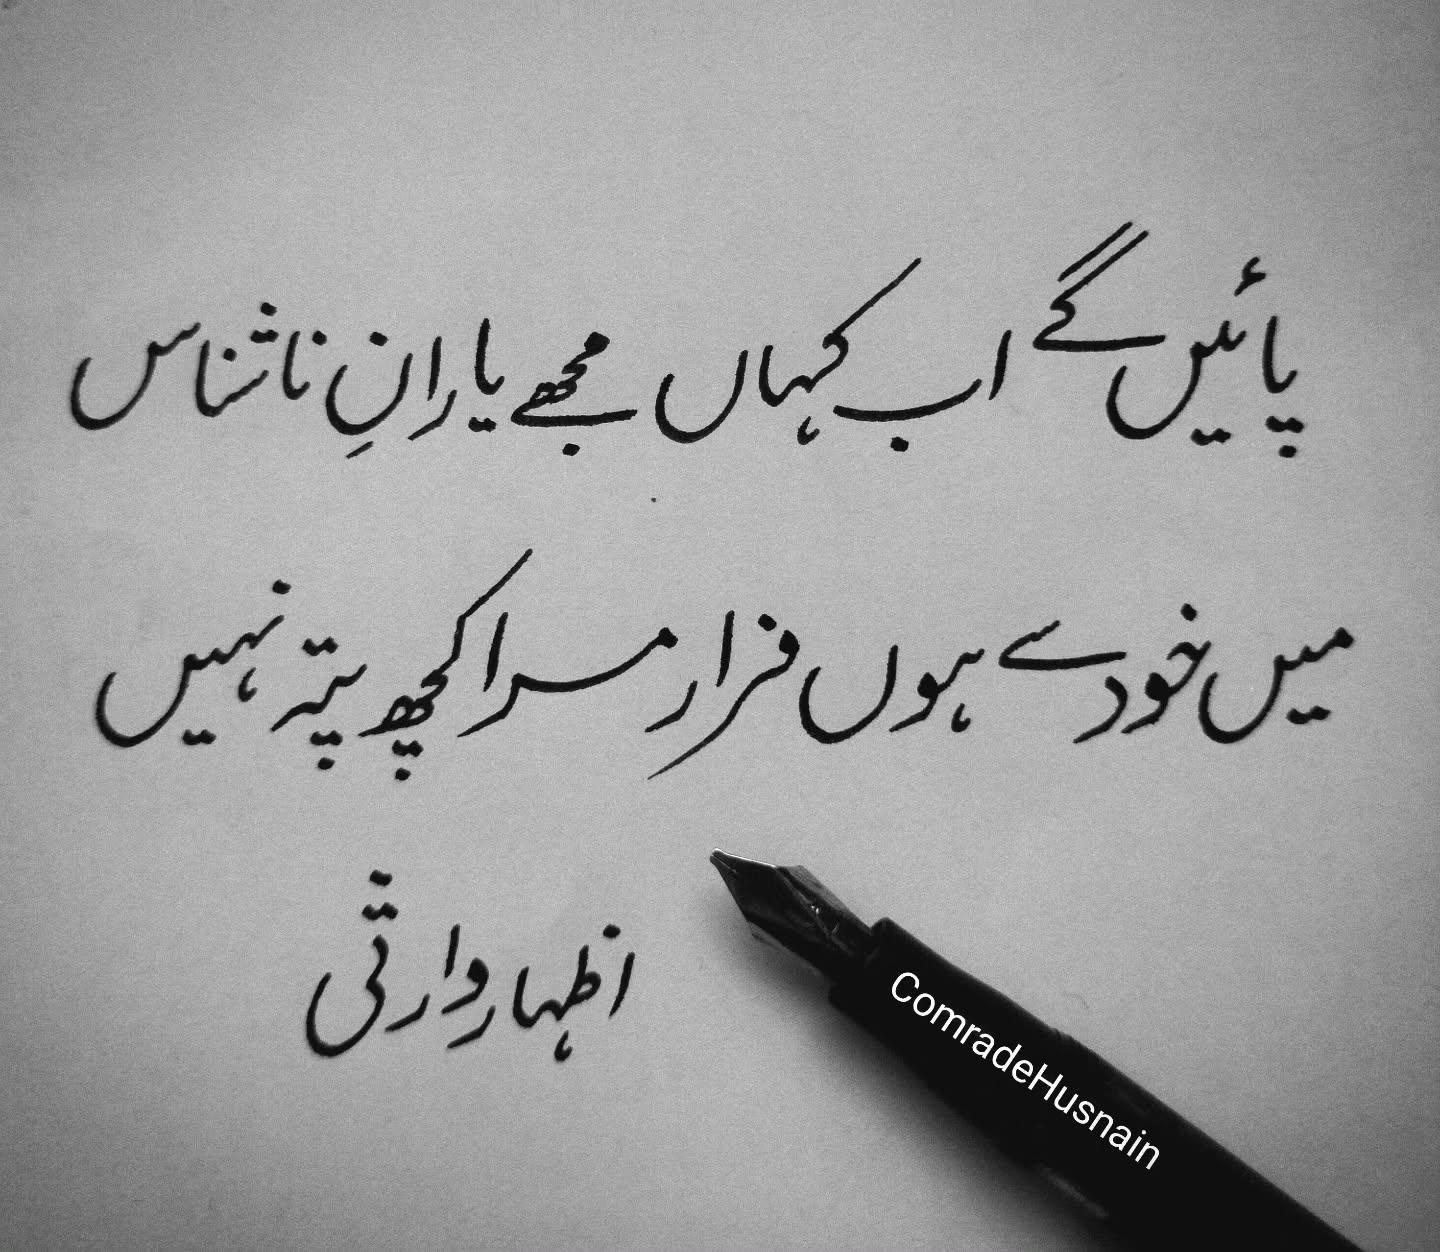 پائیں گے اب کہاں مجھے یارانِ ناشناس
میں خود سے ہوں فرار مرا کچھ پتہ نہیں
اظہار وارثی
ComradeHusnain